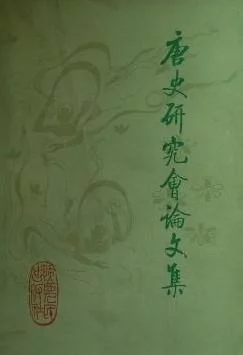 唐史研究會論文集
陝西人民
出版社